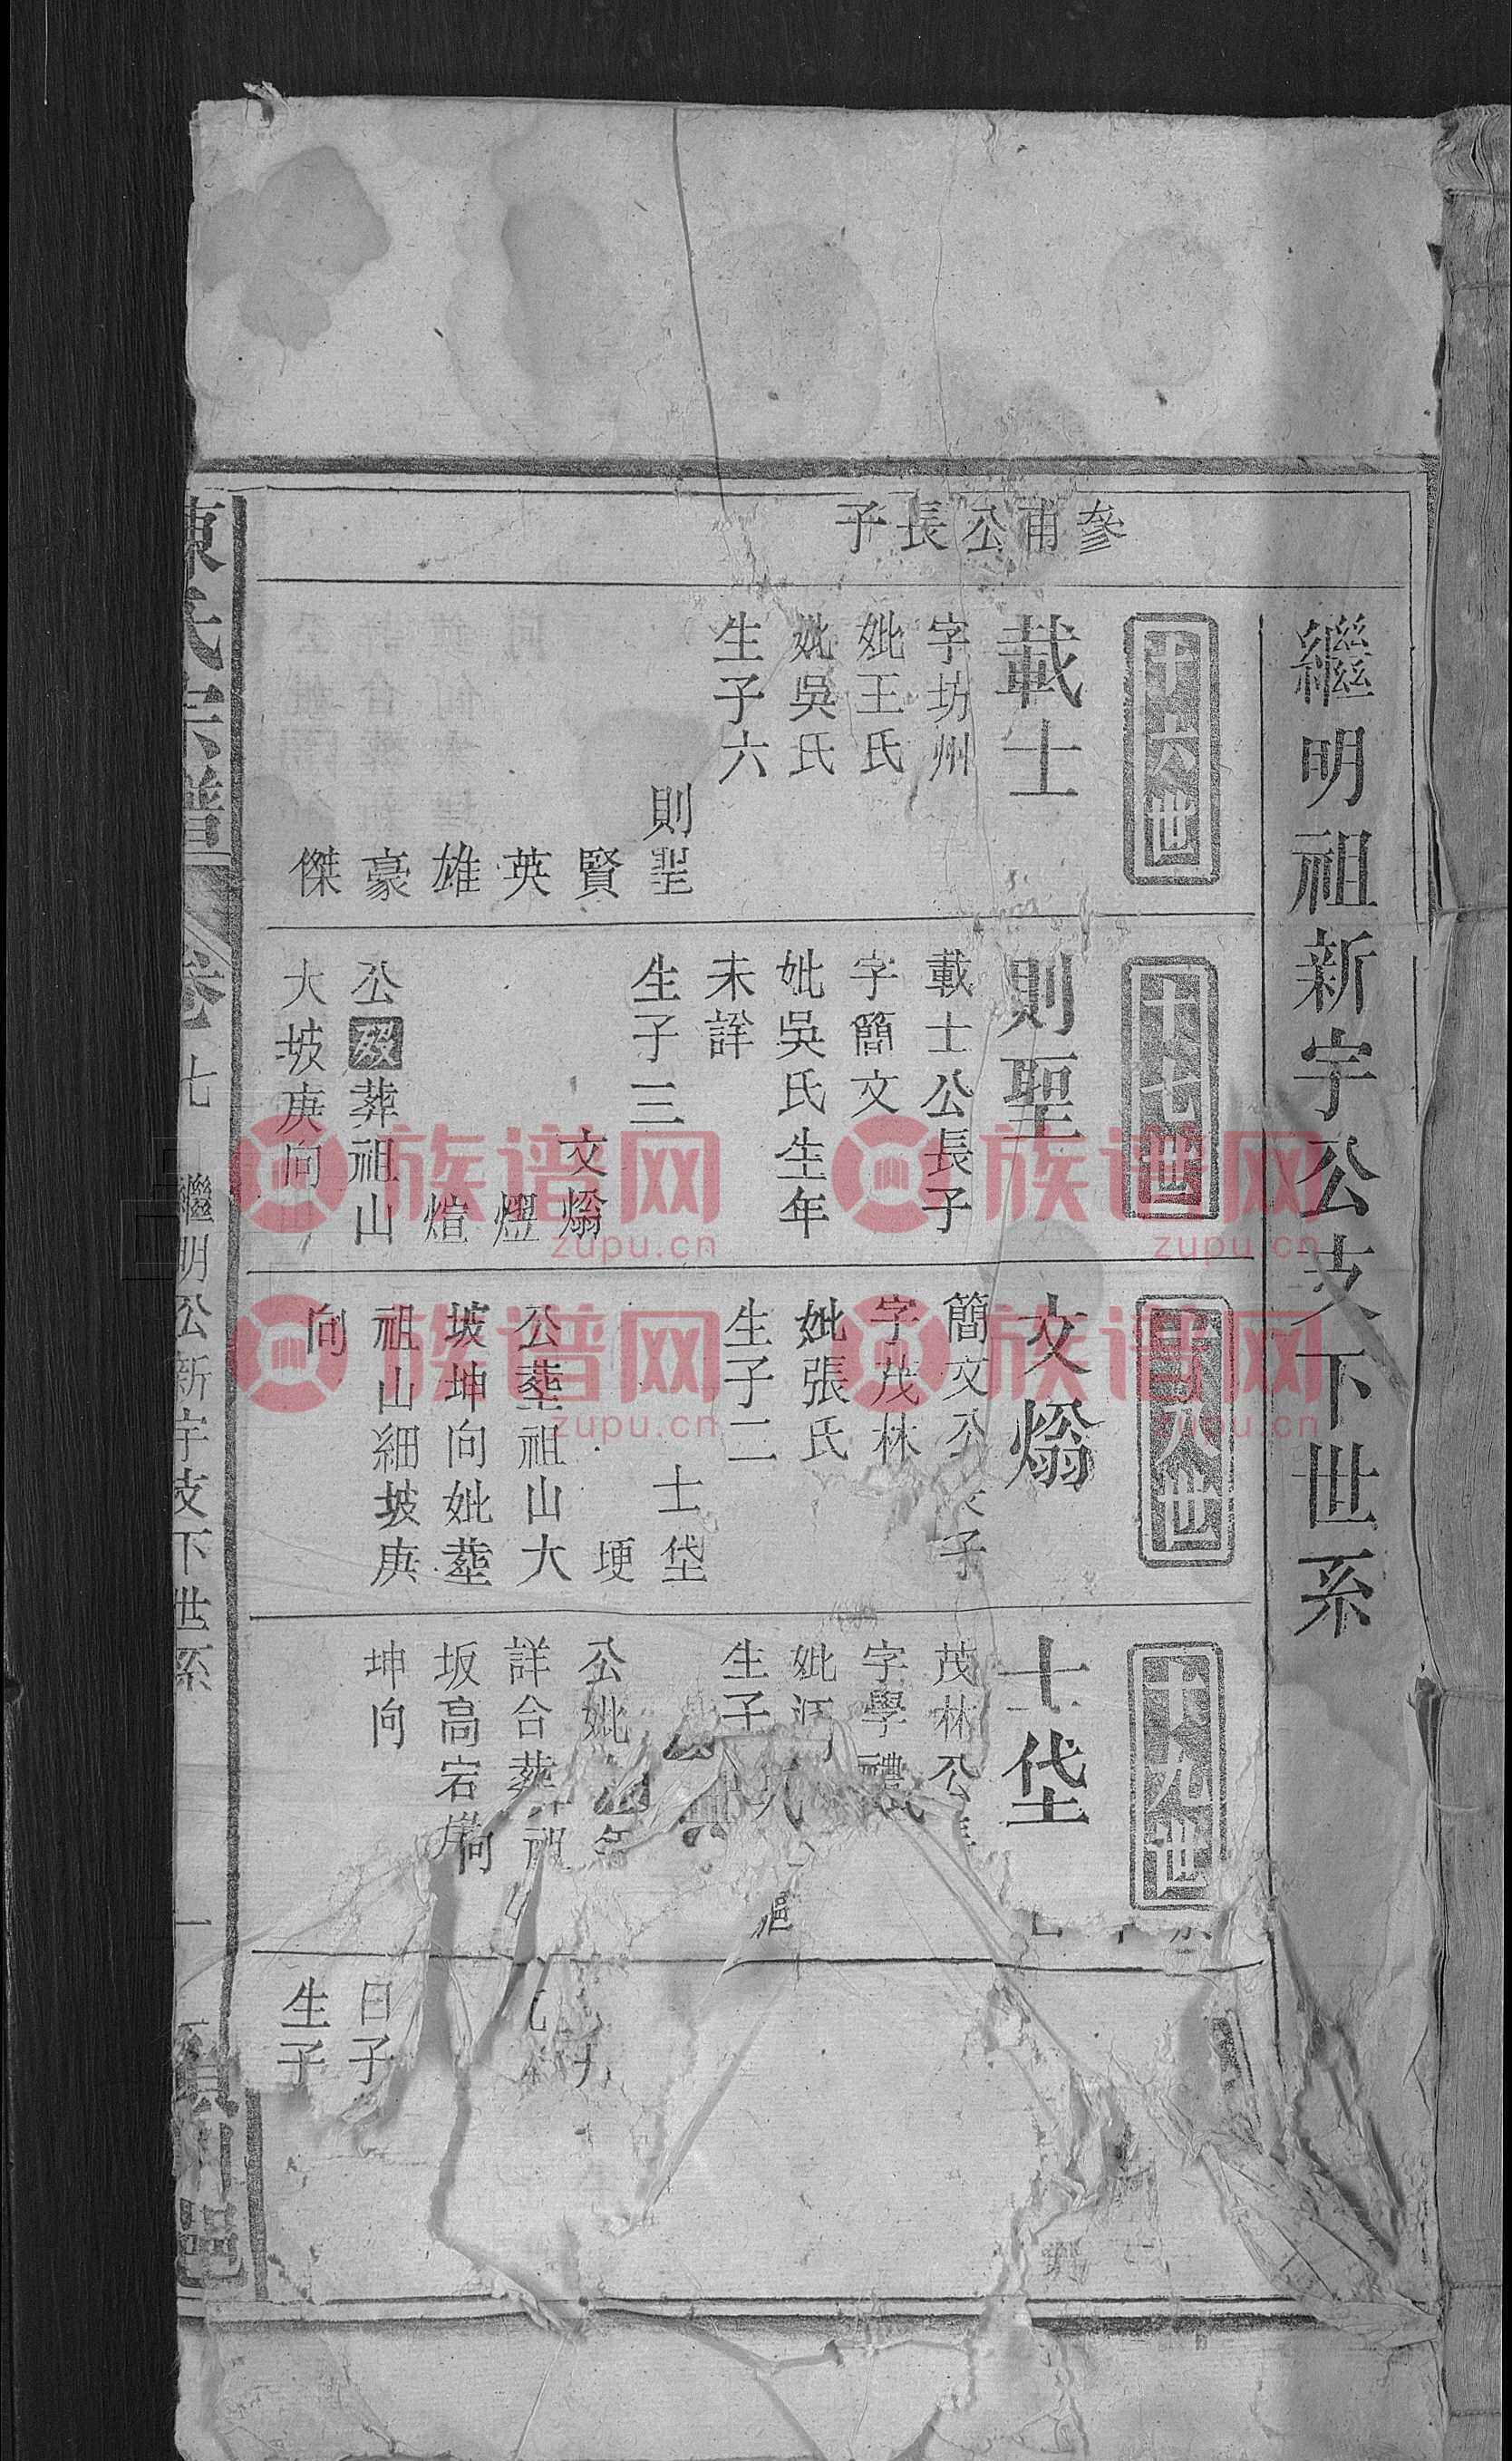 繼明祖新宇公支下世系
參甫公長子
十六世
載士
字坊州
妣王氏
妣吳氏
生子六
則聖
賢
英
雄
豪
傑
十七世
則聖
載士公長子
字簡文
妣吳氏生年
未詳
生子三
文熻
熤
煊
公歿葬祖山
大坡庚向
十八世
文熻
簡文公長子
字茂林
妣張氏
生子二
士垈
埂
公塟祖山大
坡坤向妣塟
祖山細坡庚
向
十九世
士垈
茂林公長
字學禮
妣馮
生子
公妣 年
詳合葬祖
坂高宕岸
坤向
日子
生子
陳氏宗譜
卷七
繼明公新宇支下世系
一
潁川郡
族谱网
zupu.cn
族谱网
zupu.cn
族谱网
zupu.cn
族谱网
zupu.cn